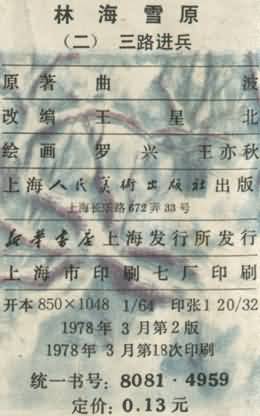 林海雪原
(二) 三路进兵
原著 曲波
改编 王星北
绘画 罗兴 王亦秋
上海人民美術出版社出版
上海长乐路672弄33号
新华書店上海发行所发行
上海市印刷七厂印刷
开本 850×1048 1/64 印张1 20/32
1978年 3月第2版
1978年 3月第18次印刷
统一书号: 8081·4959
定价: 0.13元